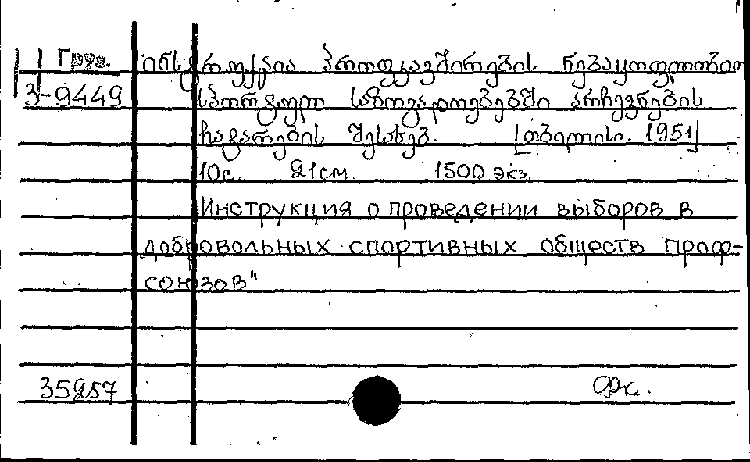 Груз. ინსტრუქცია პროფკავშირების ნებაყოფლობით
3-9449 სპორტულ საზოგადოებებში არჩევნების
ჩატარების შესახებ. [თბილისი. 1951]
10с. 21см. 1500 экз.
Инструкция о проведении выборов в
добровольных спортивных обществ проф-
союзов"
35257